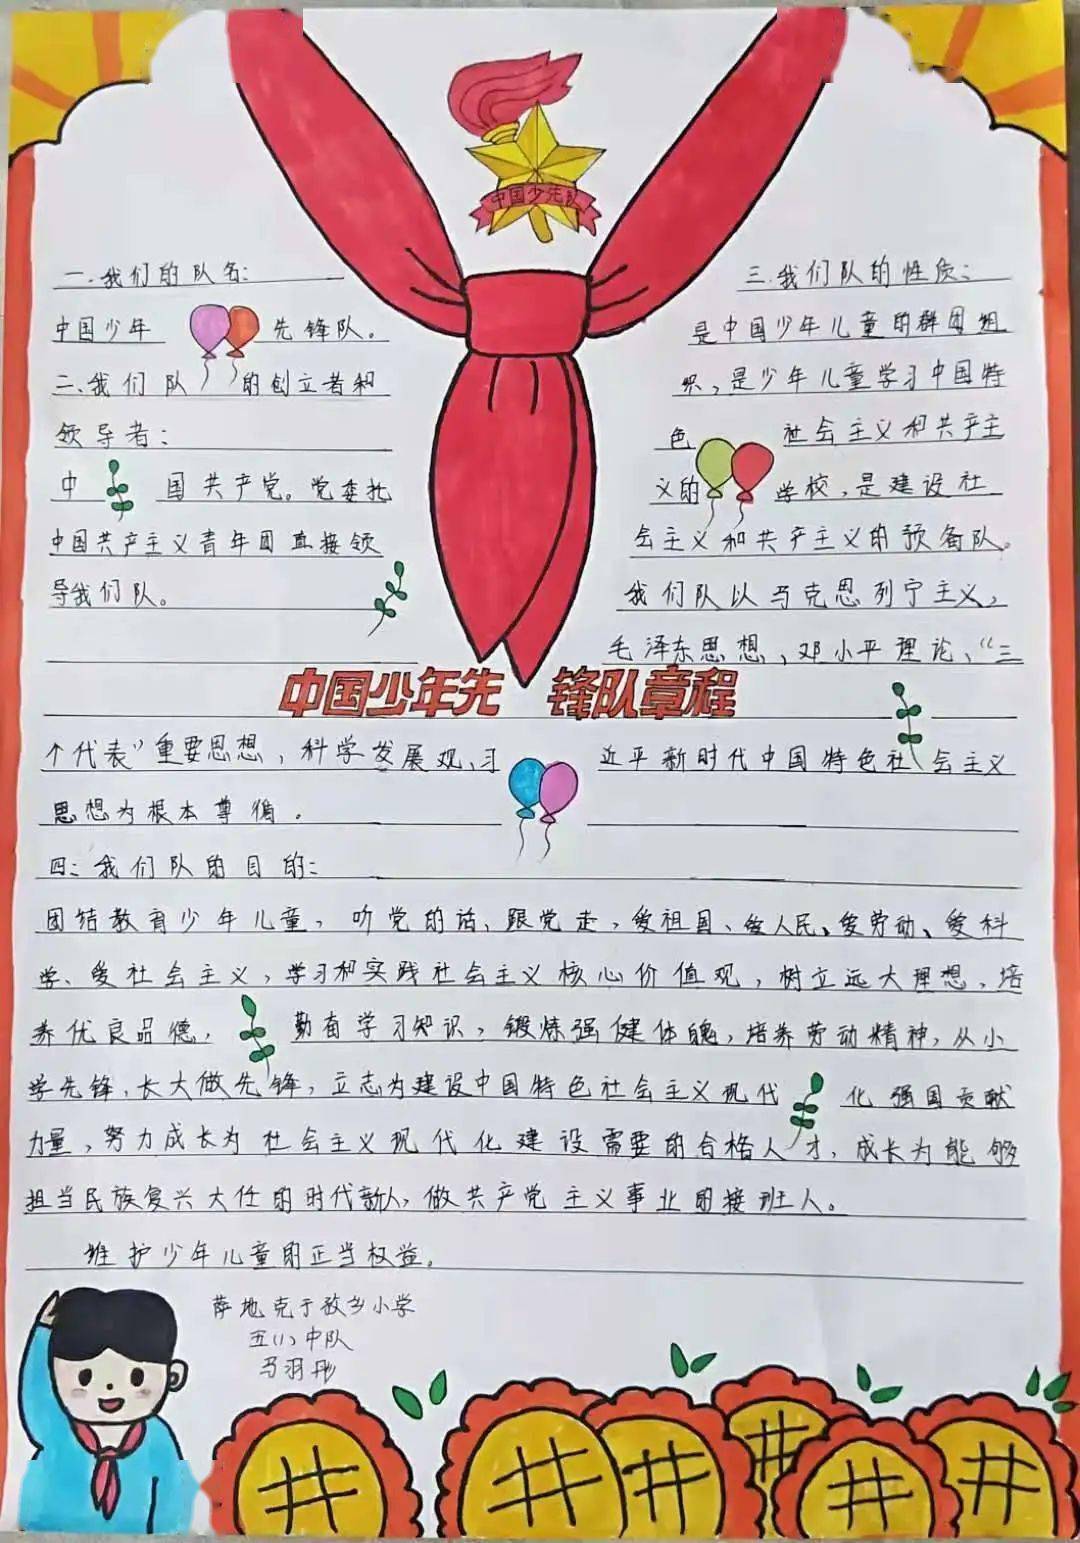 中国少先队
一.我们的队名:
中国少年先锋队。
二、我们队的创立者和
领导者:
中国共产党。党委托
中国共产主义青年团直接领
导我们队。
三.我们队的性质:
是中国少年儿童的群团组
织,是少年儿童学习中国特
色社会主义和共产主
义的学校,是建设社
会主义和共产主义的预备队。
我们队以马克思列宁主义,
毛泽东思想、邓小平理论、“三
中国少年先锋队章程
个代表”重要思想,科学发展观、习近平新时代中国特色社会主义
思想为根本尊循.
四:我们队的目的:
团结教育少年儿童,听党的话、跟党走,爱祖国、爱人民、爱劳动、爱科
学、爱社会主义,学习和实践社会主义核心价值观,树立远大理想,培
养优良品德,勤奋学习知识,锻炼强健体魄,培养劳动精神,从小
学先锋,长大做先锋,立志为建设中国特色社会主义现代化强国贡献
力量,努力成长为社会主义现代化建设需要的合格人才,成长为能够
担当民族复兴大任的时代新人,做共产党主义事业的接班人。
维护少年儿童的正当权益。
萨地克于孜乡小学
五(1)中队
马羽彤